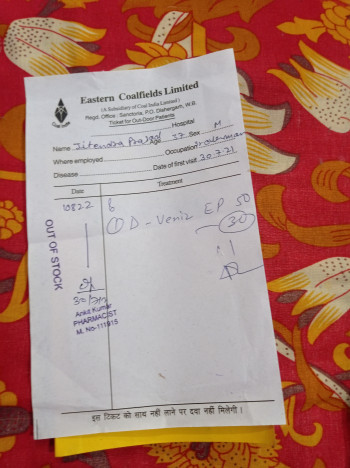 Eastern Coalfields Limited
(A Subsidiary of Coal India Limited)
Regd. Office : Sanctoria, P.O. Dishergarh, W.B.
Ticket for Out-Door Patients
Hospital
Name Jitendra Prasad Age 37 Sex M
Where employed Occupation
Disease Date of first visit 20.7.21
Date Treatment
10822
① D-Veniz EP 50
30
OUT OF STOCK
Ankit Kumar
PHARMACIST
M. No-111915
इस टिकट को साथ नहीं लाने पर दवा नहीं मिलेगी।